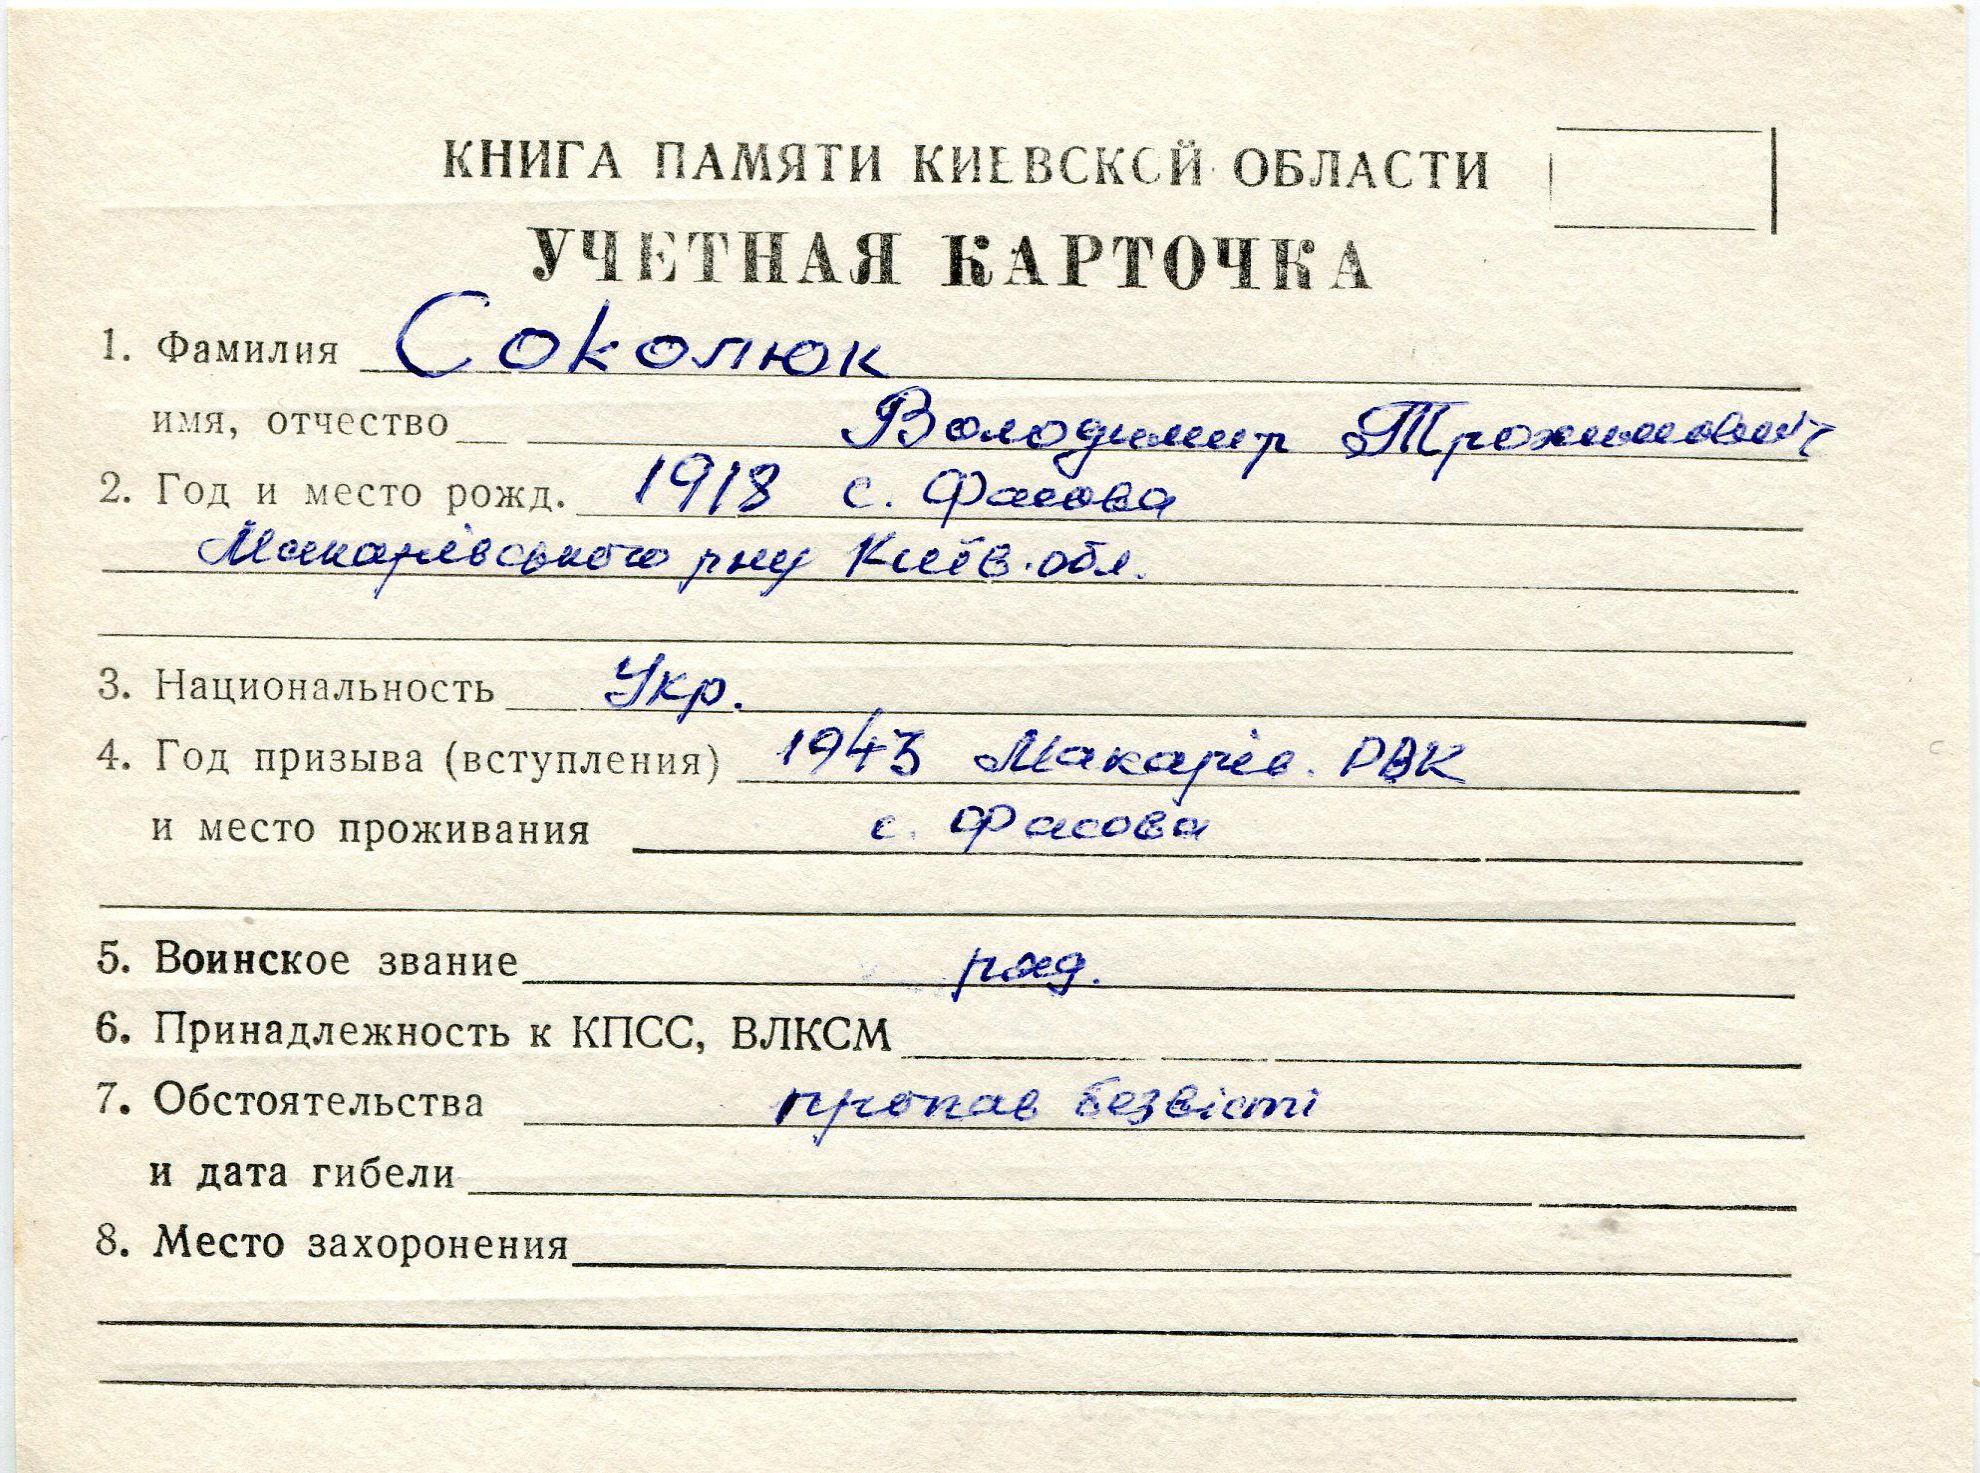 КНИГА ПАМЯТИ КИЕВСКОЙ ОБЛАСТИ
УЧЕТНАЯ КАРТОЧКА
1. Фамилия Соколюк
имя, отчество Володимир Трохимович
2. Год и место рожд. 1918 с. Фасова
Макарівського рну Київ. обл.
3. Национальность Укр.
4. Год призыва (вступления) 1943 Макарів. РВК
и место проживания с. Фасова
5. Воинское звание ряд.
6. Принадлежность к КПСС, ВЛКСМ
7. Обстоятельства пропав безвісті
и дата гибели
8. Место захоронения